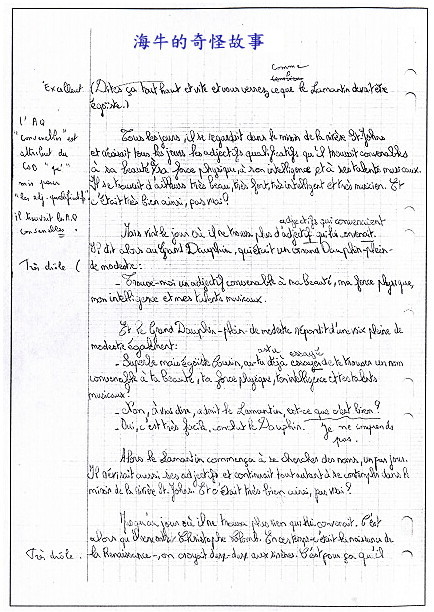 海牛的奇怪故事
comme
Excellent (Dites ça tout haut et vite et vous verrez ce que le Lamantin devait être
égoïste.)
l'AQ
"convenables" est
attribut du
COD "qu'"
mis pour
"les adj. qualificatifs"
il trouvait
convenables.
Tous les jours, il se regardait dans le miroir de la rivière St. Johns
et récitait tous les jours les adjectifs qualificatifs qu'il trouvait convenables
à sa beauté, sa force physique, à son intelligence et à ses talents musicaux.
Il se trouvait d'ailleurs très beau, très fort, très intelligent et très musicien. Et
c'était très bien ainsi, pas vrai?
adjectifs qui convenaient
Mais vint le jour où il ne trouva plus d'adjectif qui lui convenait.
Il dit alors au Grand Dauphin, qui était un Grand Dauphin-plein-
Très drôle ( de modestie:
- Trouve-moi un adjectif convenable à ma beauté, ma force physique,
mon intelligence et mes talents musicaux.
Et le Grand Dauphin-plein-de modestie répondit d'une voix pleine de
modestie également:
as-tu essayé
- Superbe mais égoïste Cousin, as-tu déjà essayer de te trouver un nom
convenable à ta beauté, ta force physique, ton intelligence et tes talents
musicaux?
- Non, à vrai dire, admit le Lamantin, est-ce que c'est bien?
- Oui, c'est très facile, conclut le Dauphin.
Je ne comprends
pas.
Alors le Lamantin commença à se chercher des noms, un par jour.
Il récitait aussi ses adjectifs et continuait tout autant à se contempler dans le
miroir de la rivière St. Johns. Et c'était très bien ainsi, pas vrai?
Jusqu'au jour où il ne trouva plus rien qui lui convenait. C'est
alors qu'il rencontra Christophe Colomb. En ces temps-c'était la naissance de
Très drôle. la Renaissance-, on croyait dur-dur aux sirènes. C'est pour ça qu'il